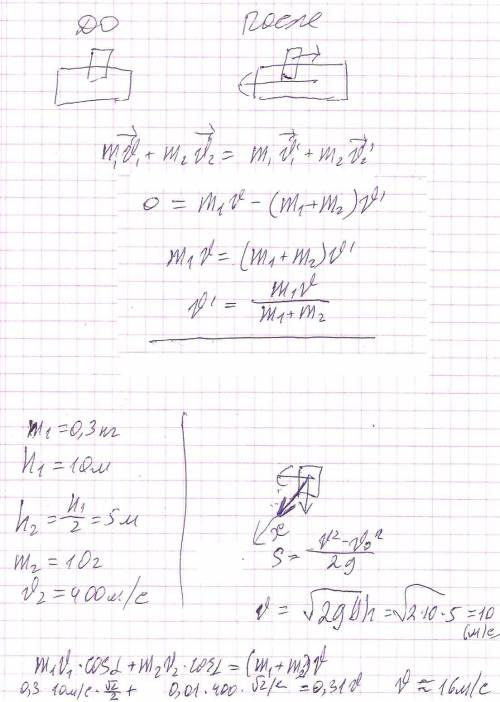 ДО После
m₁v⃗₁ + m₂v⃗₂ = m₁v⃗₁' + m₂v⃗₂'
0 = m₁v - (m₁+m₂)v'
m₁v = (m₁+m₂)v'
v' = m₁v / (m₁+m₂)
m₁ = 0,3 кг
h₁ = 10 м
h₂ = h₁/2 = 5 м
m₂ = 10 г
v₂ = 400 м/с
x
S = (v² - v₀²) / 2g
v = √(2gΔh) = √(2·10·5) = 10 (м/с)
m₁v₁·cosα + m₂v₂·cosα = (m₁+m₂)v
0,3 10м/с·√2/2 + 0,01·400·√2/2 = 0,31v v ≈ 16 м/с